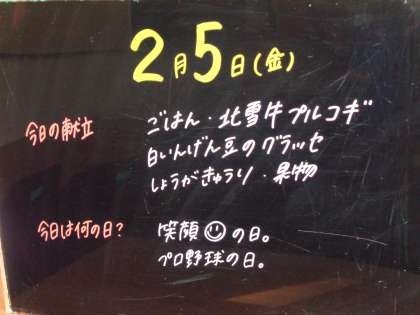 2月5日(金)
今日の献立 ごはん・北雪牛プルコギ
白いんげん豆のグラッセ
しょうがきゅうり・果物
今日は何の日? 笑顔☺の日。
プロ野球の日。